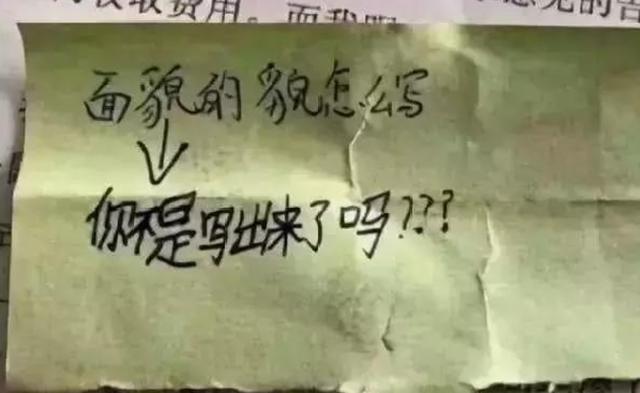 收取费用。而我
面貌的貌怎么写
↓
你不是写出来了吗???